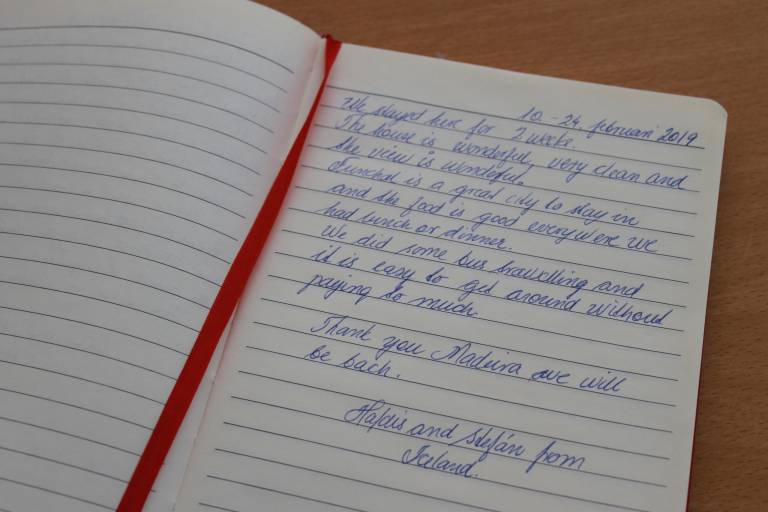 10. - 24. februari 2019
We stayed here for 2 weeks.
The house is wonderful, very clean and
the view is wonderful.
Funchal is a great city to stay in
and the food is good everywere we
had lunch or dinner.
We did some bus travelling and
it is easy to get around without
paying to much.
Thank you Madeira, we will
be back.
Hafdis and Stefán from
Iceland.